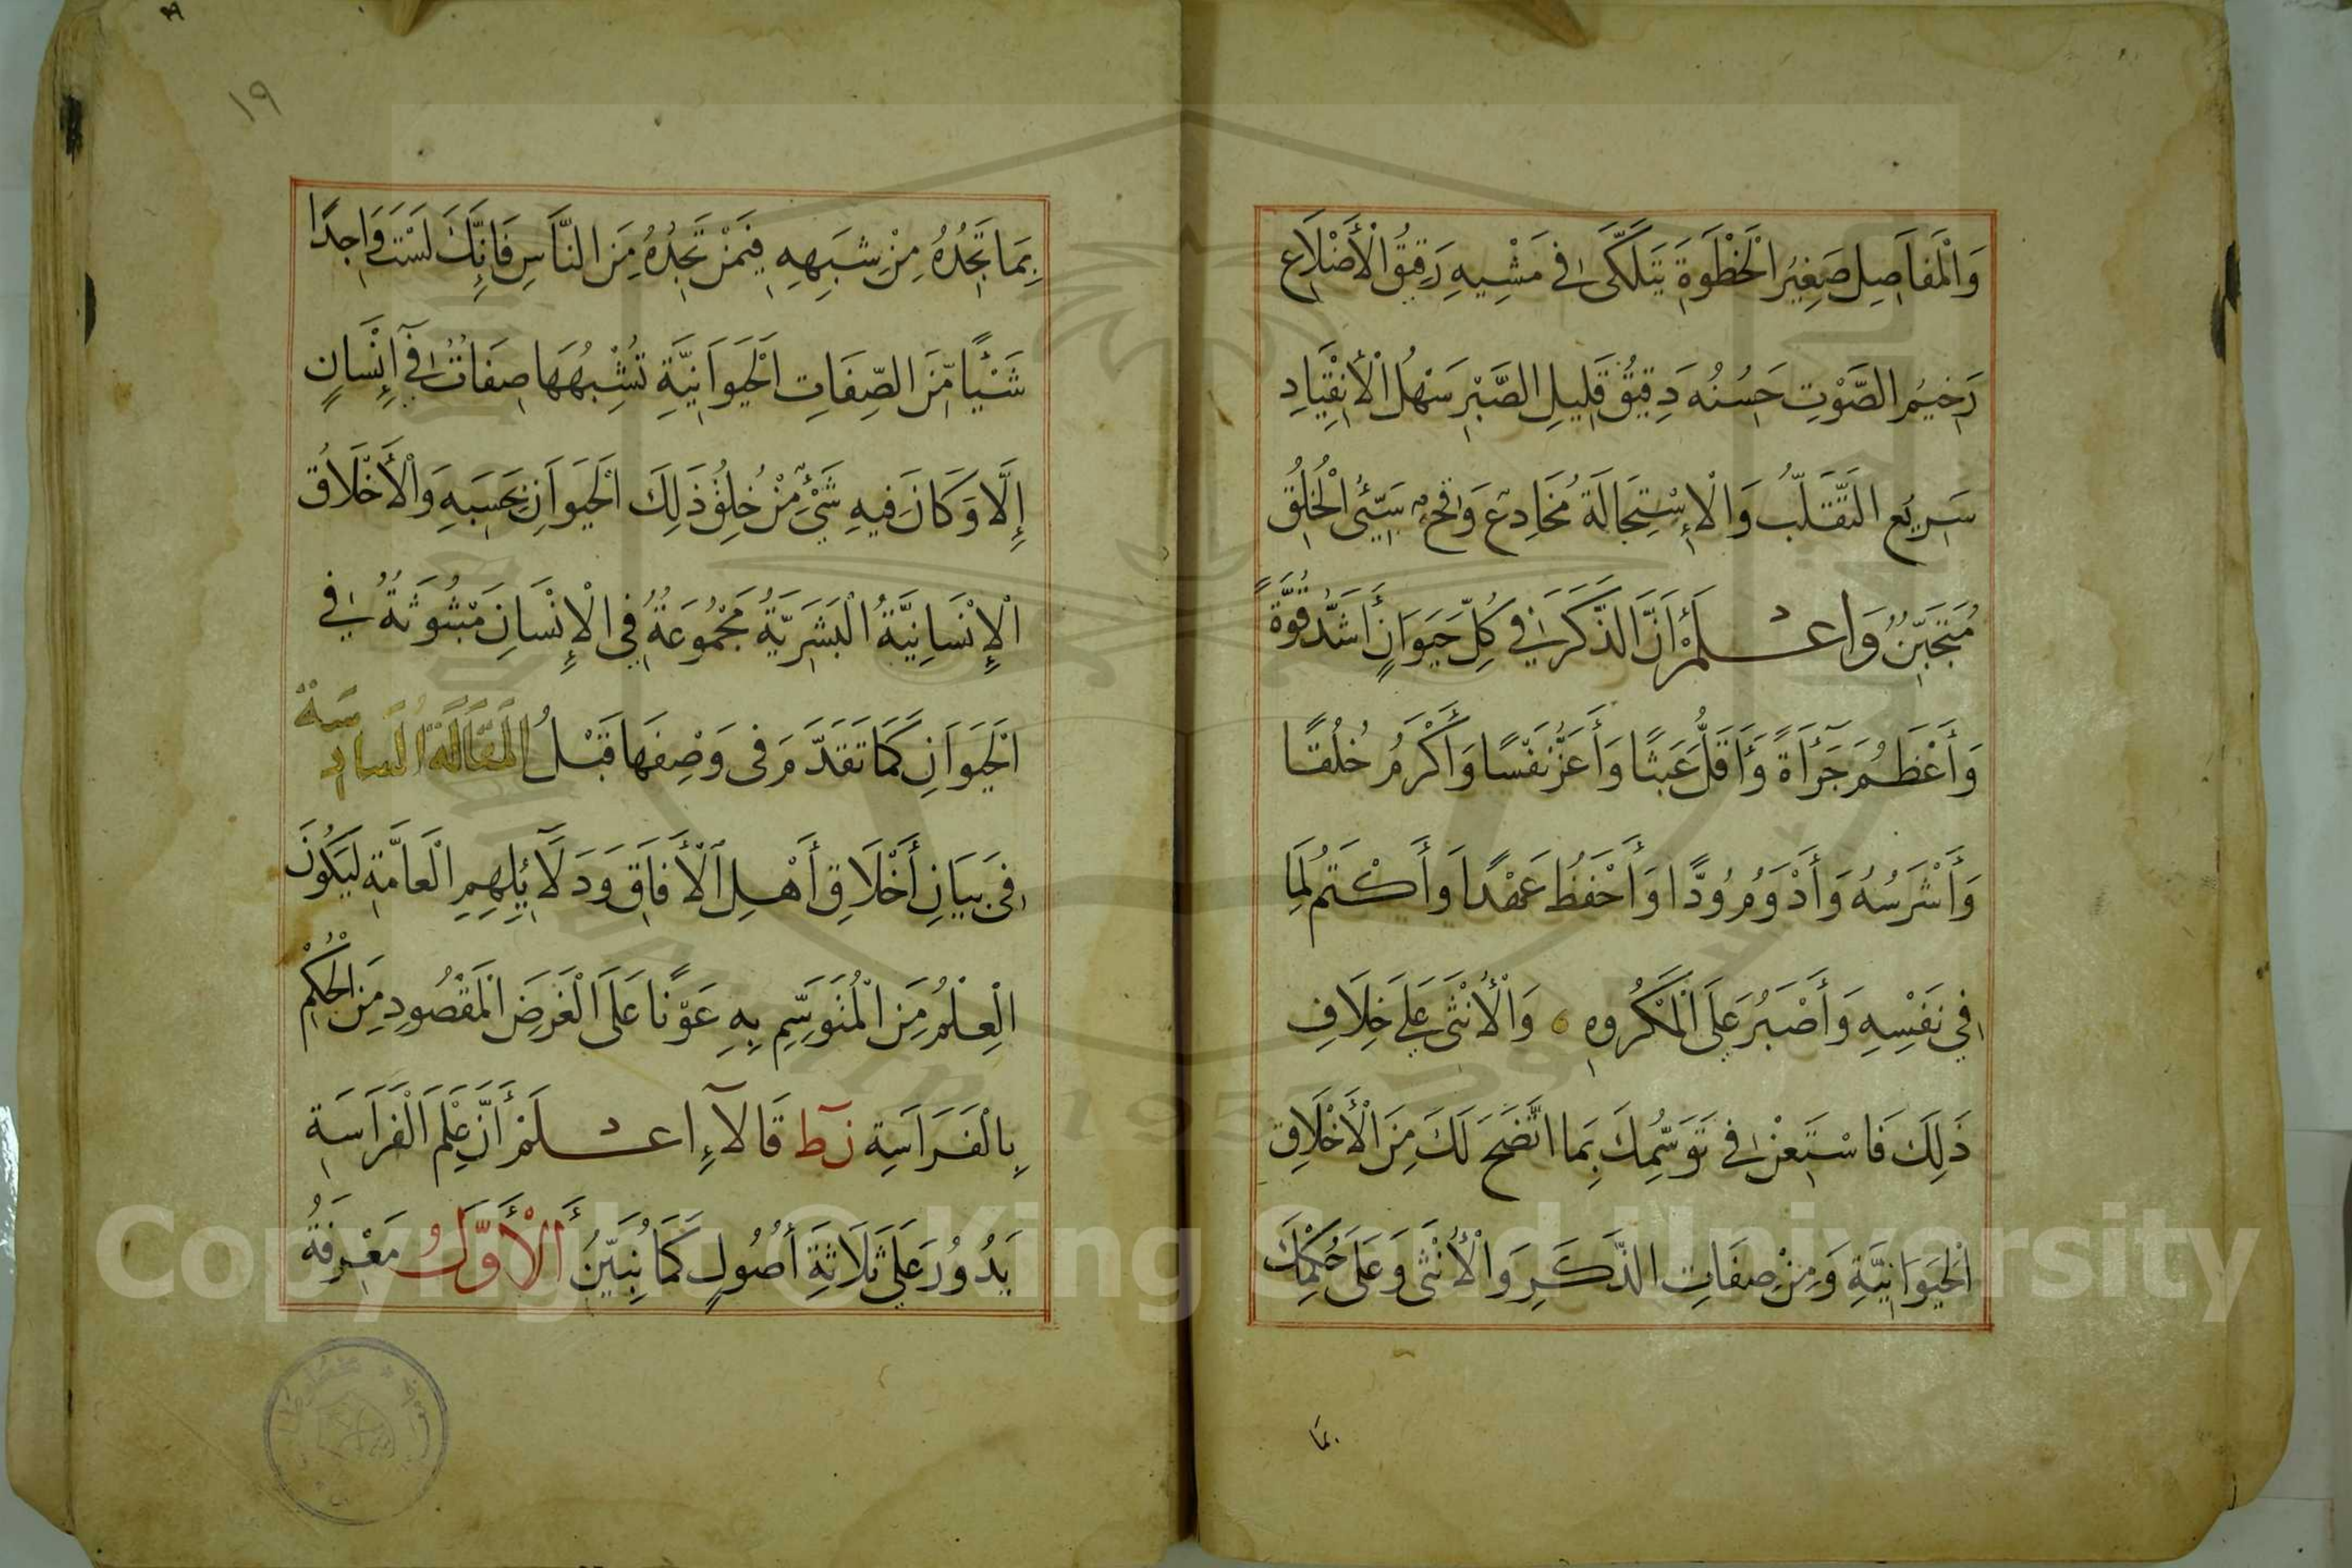 وَالْمَفَاصِلِ صَغِيرُ الْخَطْوَةِ يَتَلَكَّى فِي مَشْيِهِ رَقِيقُ الْأَضْلَاعِ
رَخِيمُ الصَّوْتِ حَسَنُهُ دَقِيقٌ قَلِيلِ الصَّبْرِ سَهْلُ الْاِنْقِيَادِ
سَرِيعُ التَّقَلُّبِ وَالْاِسْتِحَالَةِ مُخَادِعٌ وَقِحٌ سَيِّئُ الْخُلُقِ
وَاعْلَمْ أَنَّ الذَّكَرَ فِي كُلِّ حَيَوَانٍ أَشَدُّ قُوَّةً
وَأَعْظَمُ جَرَآءَةً وَأَقَلُّ عَبَثًا وَأَعَزُّ نَفْسًا وَأَكْرَمُ خُلُقًا
وَأَشْرَسُهُ وَأَدْوَمُ وُدًّا وَأَحْفَظُ عَهْدًا وَأَكْتَمُ لِمَا
فِي نَفْسِهِ وَأَصْبَرُ عَلَى الْمَكْرُوهِ وَالْأُنْثَى عَلَى خِلَافِ
ذَلِكَ فَاسْتَعِنْ فِي تَوَسُّمِكَ بِمَا اتَّضَحَ لَكَ مِنَ الْأَخْلَاقِ
الْحَيَوَانِيَّةِ وَمِنْ صِفَاتِ الذَّكَرِ وَالْأُنْثَى وَعَلَى حُكْمِكَ
بما
١٩
بِمَا تَجِدُهُ مِنْ شَبَهِهِ فِيمَنْ تَجِدُهُ مِنَ النَّاسِ فَإِنَّكَ لَسْتَ وَاجِدًا
شَيْئًا مِّنَ الصِّفَاتِ الْحَيَوَانِيَّةِ تُشْبِهُهَا صِفَاتٌ فِي إِنْسَانٍ
إِلَّا وَكَانَ فِيهِ شَيْءٌ مِنْ خُلُقِ ذَلِكَ الْحَيَوَانِ بِحَسَبِهِ وَالْأَخْلَاقُ
الْإِنْسَانِيَّةُ الْبَشَرِيَّةُ مَجْمُوعَةٌ فِي الْإِنْسَانِ مَبْثُوثَةٌ فِي
الْحَيَوَانِ كَمَا تَقَدَّمَ فِي وَصْفِهَا قَبْلُ الْمَقَالَةُ السَّادِسَةُ
فِي بَيَانِ أَخْلَاقِ أَهْلِ الْآفَاقِ وَدَلَائِلِهِمِ الْعَامَّةِ لِيَكُونَ
الْعِلْمُ مِنَ الْمُتَوَسِّمِ بِهِ عَوْنًا عَلَى الْغَرَضِ الْمَقْصُودِ مِنَ الْحُكْمِ
بِالْفَرَاسَةِ نط قَالَا اعْلَمْ أَنَّ عِلْمَ الْفَرَاسَةِ
يَدُورُ عَلَى ثَلَاثَةِ أُصُولٍ كَمَا نُبَيِّنُ الْأَوَّلُ مَعْرِفَةُ
Copyright © King Saud University